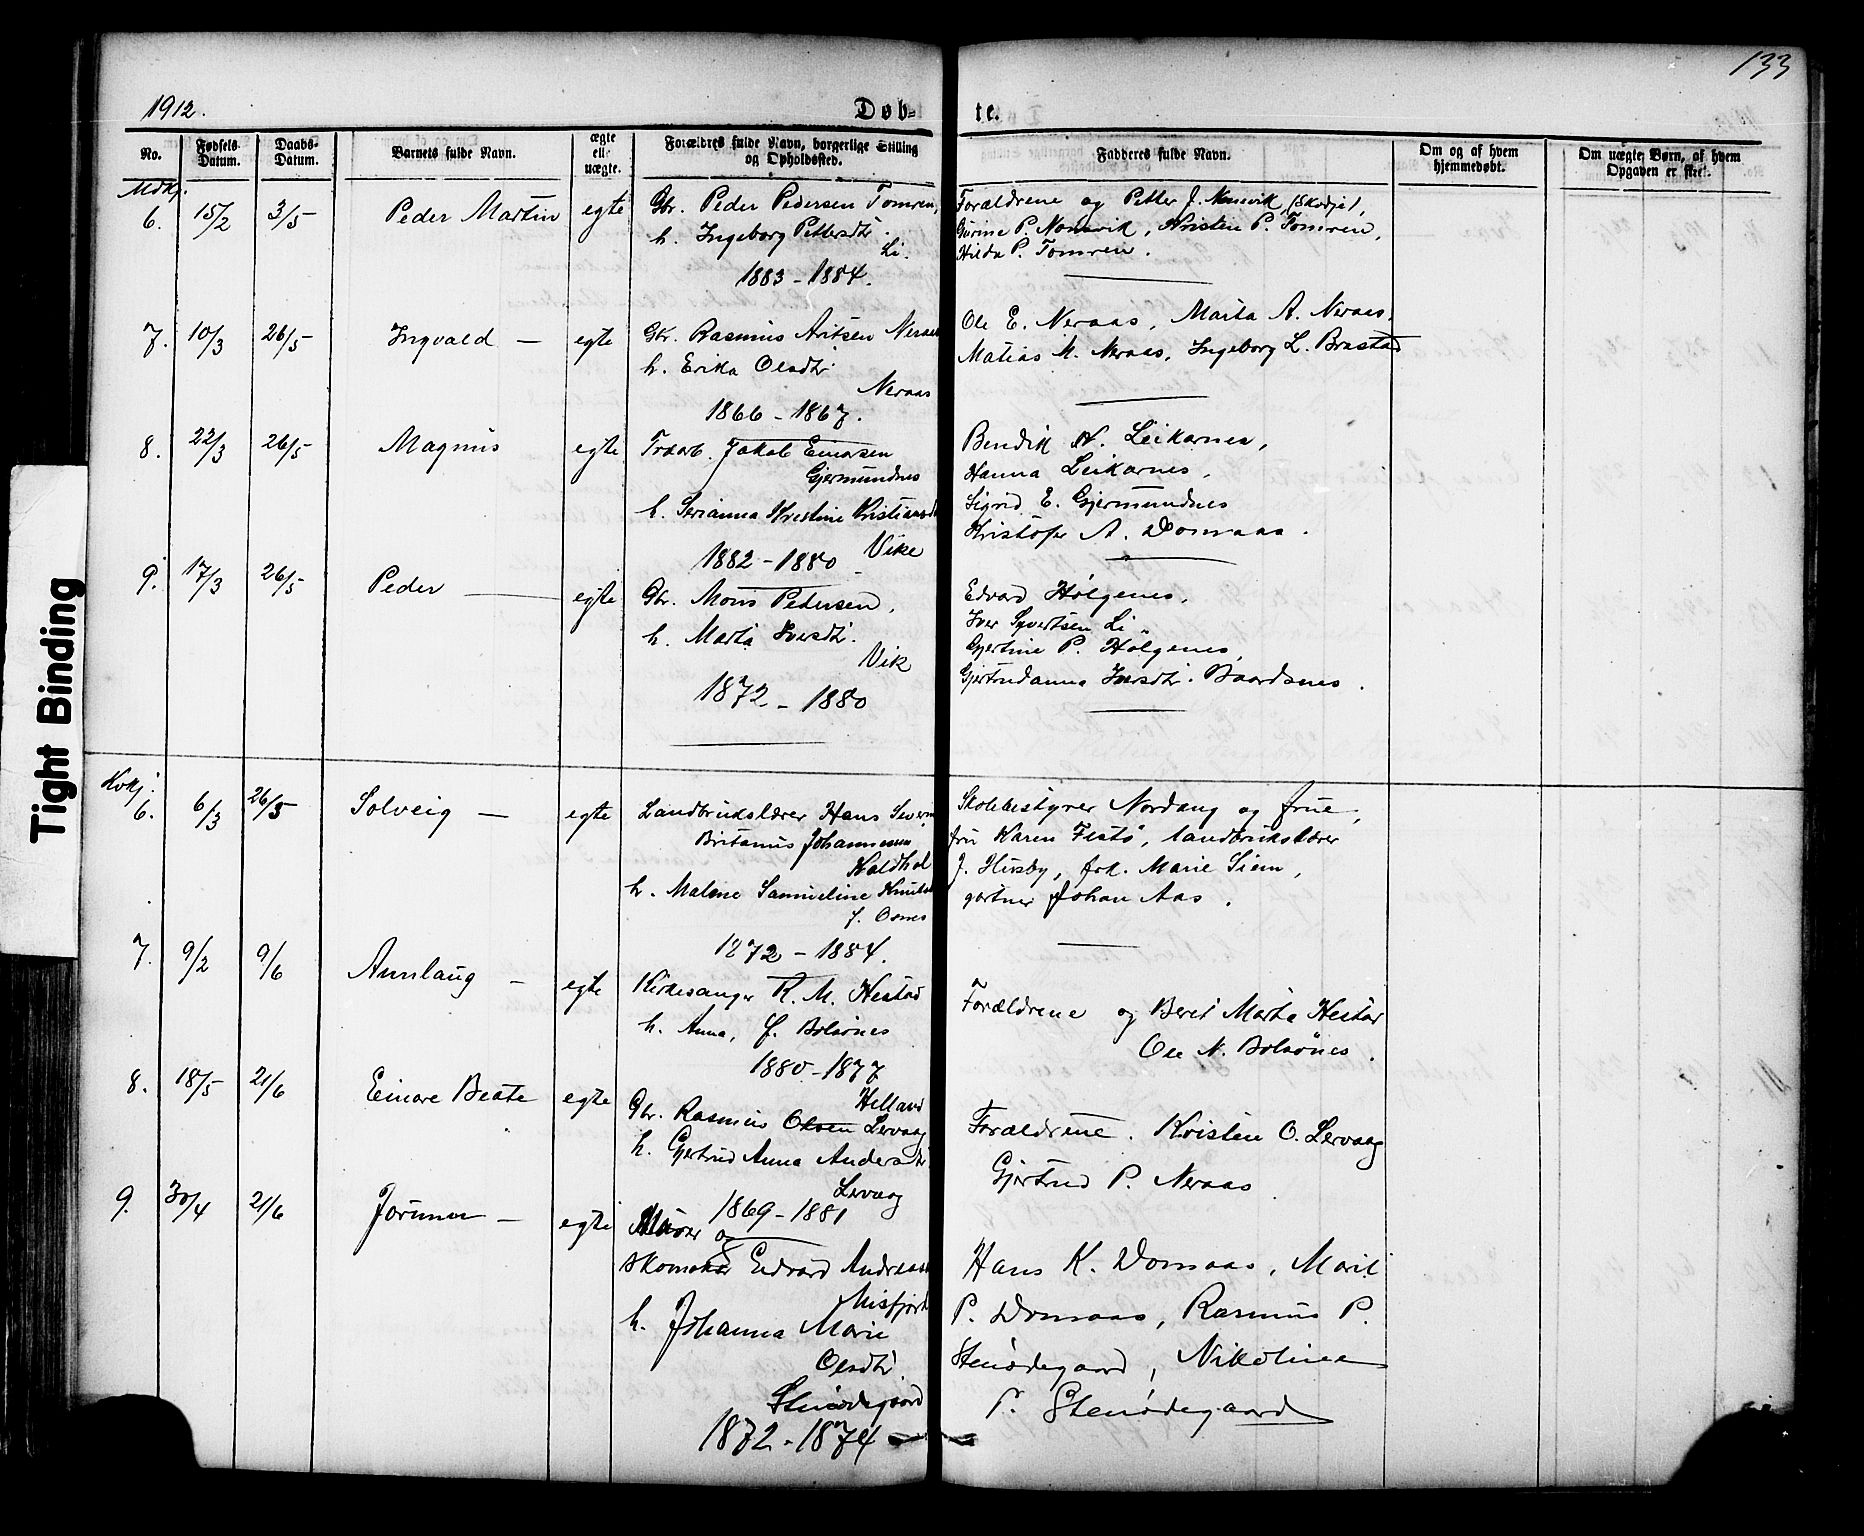 133
1912.
Døb-
te.
No.
Fødsels
Datum.
Daabs-
Datum.
Barnets fulde Navn.
ægte
ell.
uægte.
Forældres fulde Navn, borgerlige Stilling
og Opholdssted.
Fadderes fulde Navn.
Om og af hvem
hjemmedøbt.
Om uægte Børn, af hvem
Opgaven er skeet.
Mdkj.
6. 15/2 3/5 Peder Martin egte
Gbr. Peder Pedersen Tomren,
h. Ingeborg Pettersdtr.
Li.
1883 - 1884.
Forældrene og Petter J. Nonsvik, (Skodje),
Gurine P. Nonsvik, Kristen P. Tomren,
Hilda P. Tomren.
7. 10/3 26/5 Ingvald — egte
Gbr. Rasmus Aritsen Neraas
h. Erika Olsdtr.
Neraas
1866 - 1867.
Ole E. Neraas, Marta A. Neraas,
Matias M. Neraas, Ingeborg L. Brastad
8. 22/3 26/5 Magnus egte
Traarb. Jakob Einarsen
Gjermundnes
h. Serianna Kristine Kristiansdtr
Vike
1882 - 1880
Bendik N. Leikarnes,
Hanna Leikarnes,
Sigrid E. Gjermundnes
Kristofer A. Vonaas.
9. 17/3 26/5 Peder — egte
Gbr. Mons Pedersen,
h. Marta Iversdtr.
Vik
1872 - 1880
Edvard Hølgenes,
Iver Syvertsen Li
Gjertine P. Hølgenes,
Gjertrudanna Iversdtr. Baardsnes.
Kvkj.
6. 6/3 26/5 Solveig — egte
Landbrukslærer Hans Severin
Britanus Johannessen
Haldhol
h. Malene Samueline Knutsd
f. Osnes
1872 - 1884.
Skolebestyrer Nordang og frue,
fru Karen Festø, landbrukslærer
J. Husby, frk. Marie Siem,
gartner Johan Aas.
7. 9/2 9/6 Aunlaug — egte
Kirkesanger R. M. Hestad
h. Anna, f. Bolsønes
1880 - 1877
Forældrene og Berit Marta Hestad
Ole N. Bolsønes.
8. 18/5 21/6 Einare Beate egte
Helland
Gbr. Rasmus Olsen Lervaag
h. Gjertrud Anna Andersdtr
Lervaag
1869 - 1881
Forældrene. Kristen O. Lervaag
Gjertrud P. Neraas
9. 30/4 21/6 Jorunn — egte
Murer og
skomaker Edvard Andreassen
Misfjord
h. Johanna Marie
Olsdtr.
Stensødegaard
1872 - 1874
Hans K. Vonaas, Marit
P. Vonaas, Rasmus P.
Stenødegaard, Nikoline
P. Stenødegaard
Tight Binding